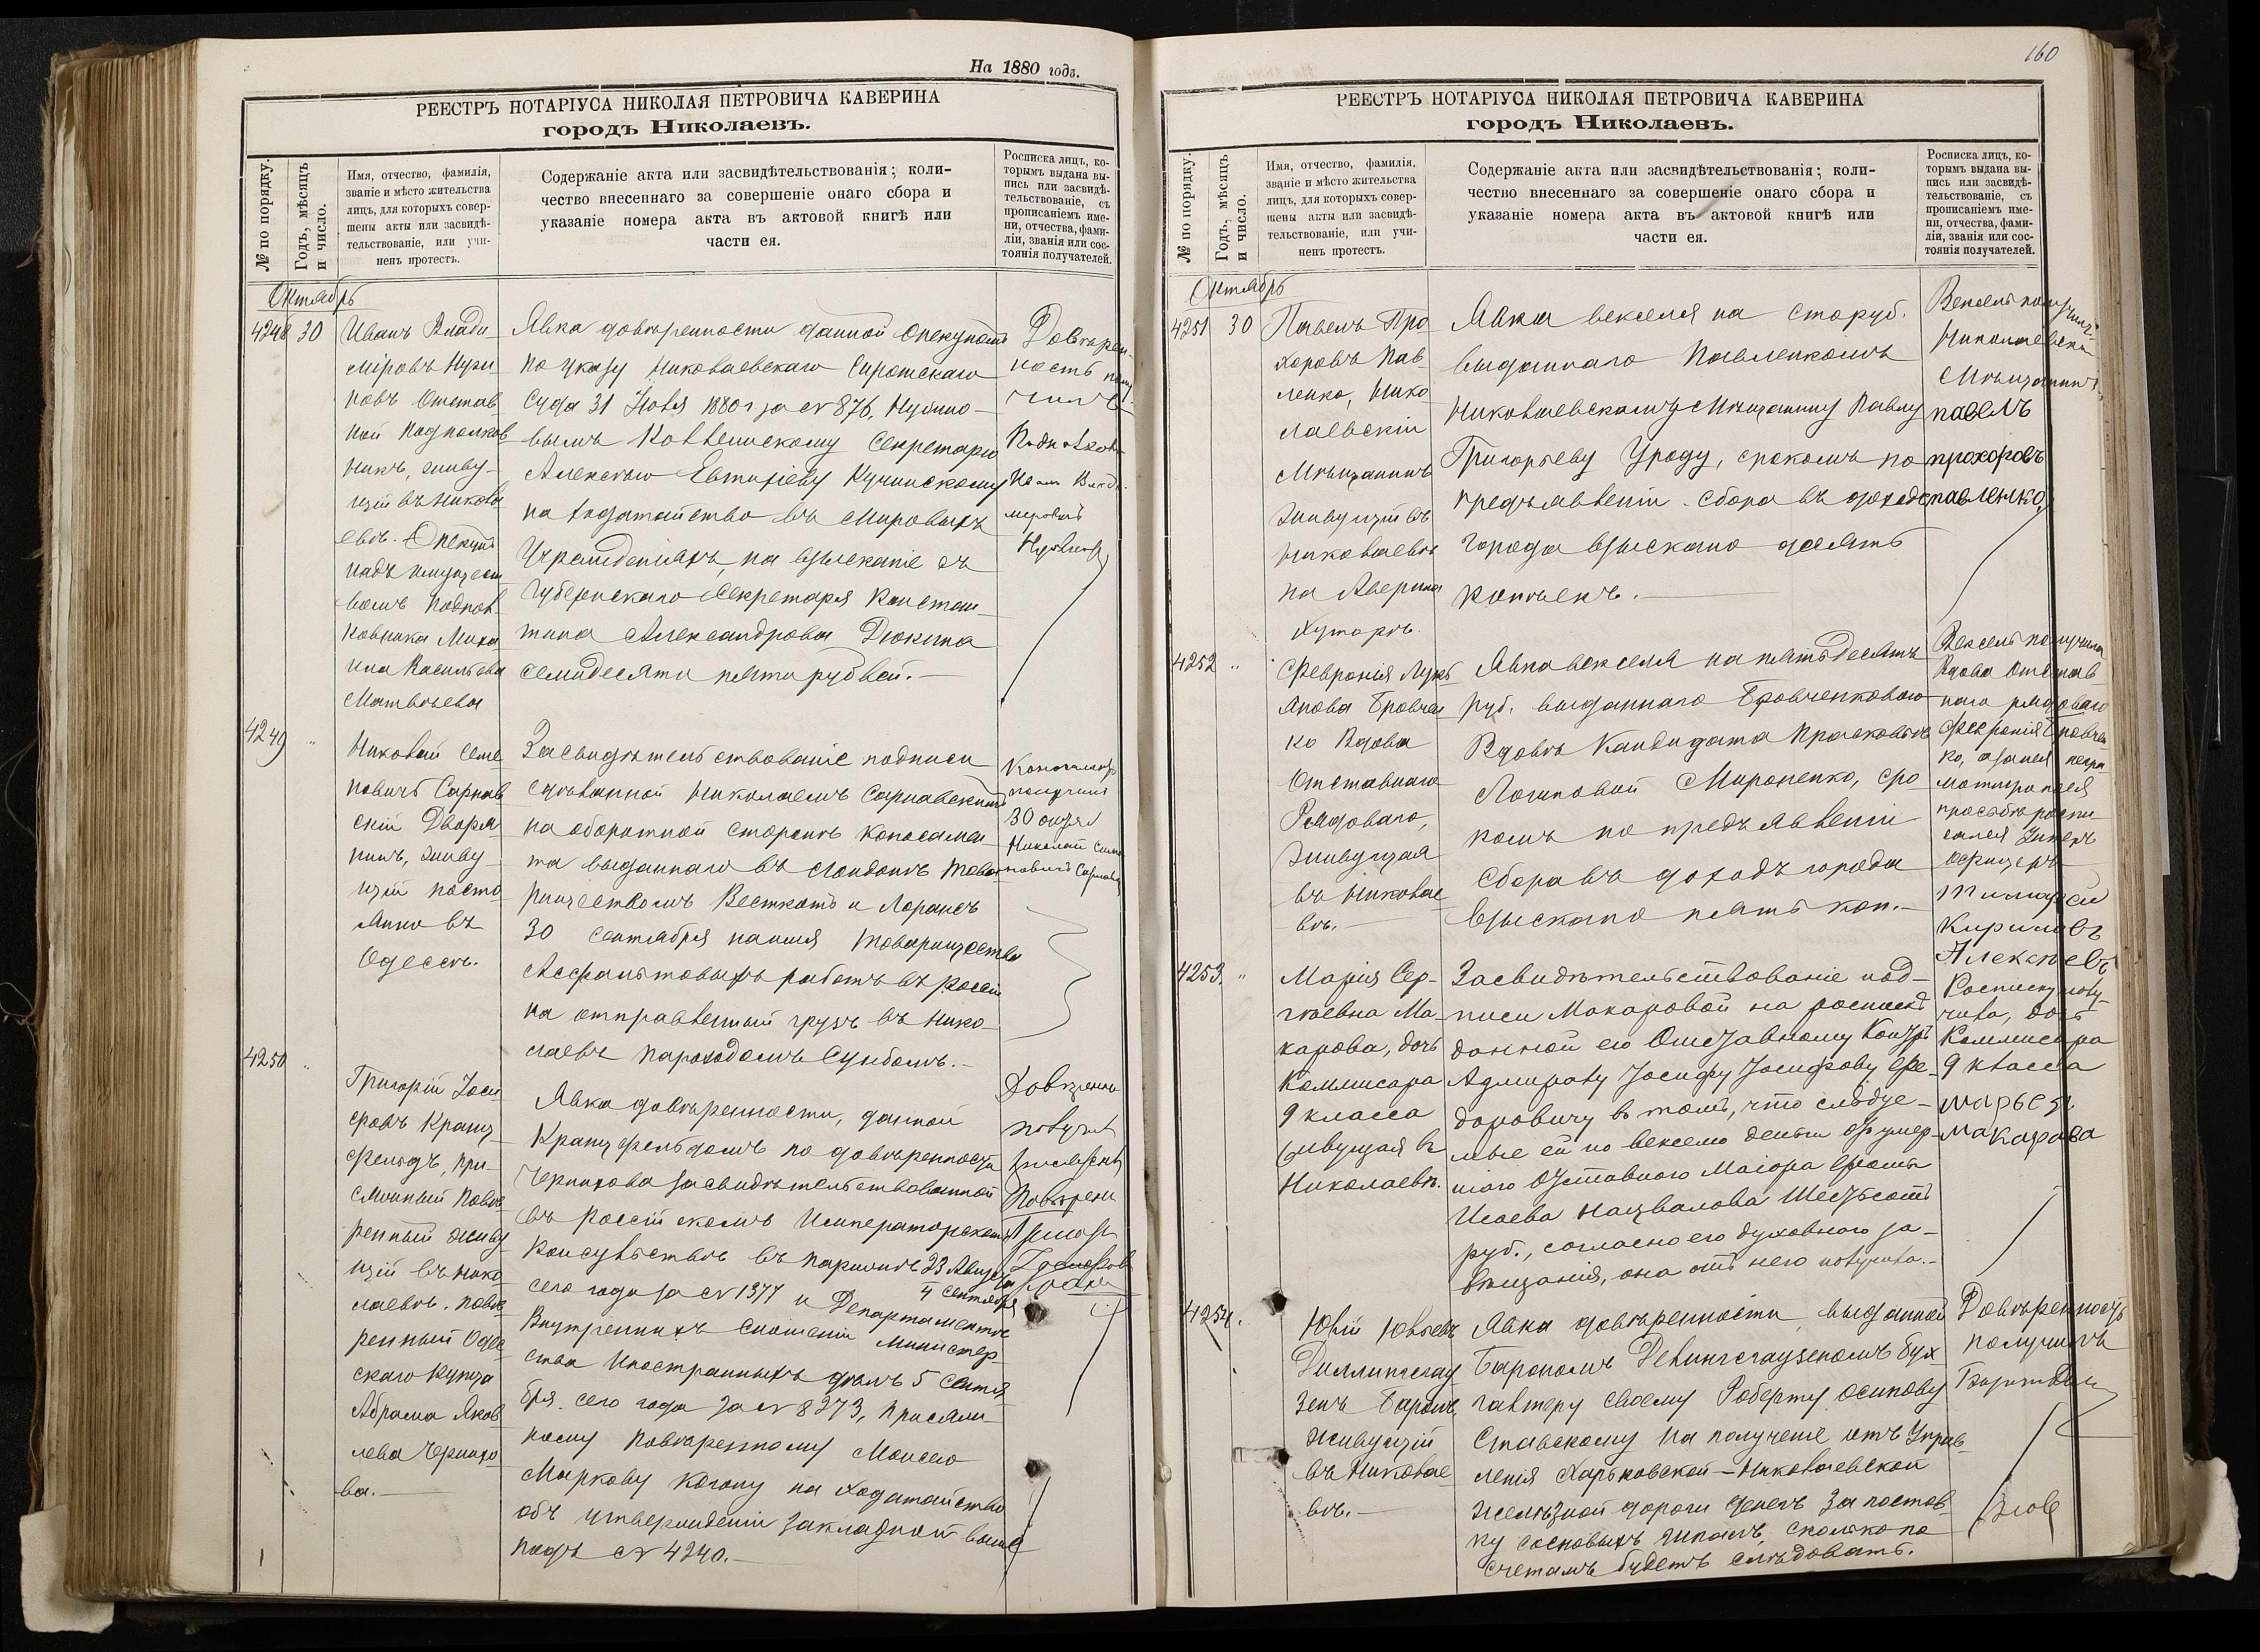 На 1880 годъ.
РЕЕСТРЪ НОТАРІУСА НИКОЛАЯ ПЕТРОВИЧА КАВЕРИНА
городъ Николаевъ.
№ по порядку.
Годъ, мѣсяцъ
и число.
Имя, отчество, фамилія,
званіе и мѣсто жительства
лицъ, для которыхъ совер-
шены акты или засвидѣ-
тельствованіе, или учи-
ненъ протестъ.
Содержаніе акта или засвидѣтельствованія; коли-
чество внесеннаго за совершеніе онаго сбора и
указаніе номера акта въ актовой книгѣ или
части ея.
Росписка лицъ, ко-
торымъ выдана вы-
пись или засвидѣ-
тельствованіе, съ
прописаніемъ име-
ни, отчества, фами-
ліи, званія или сос-
тоянія получателей.
Октябрь
4248 30
Иванъ Влади
міровъ
новъ Отстав
ной Подполков
никъ, живу-
щій въ Никола
евѣ. Опекунъ
надъ имущест
вомъ Подпол
ковника Миха
ила Васильева
Матвѣева
Явка довѣренности данной Опекуномъ
по указу Николаевскаго Сиротскаго
Суда 31 Іюля 1880 г за № 876,
вымъ Коллежскому Секретарю
Алексѣю Евтихіеву
на ходатайство въ Мировыхъ
Учрежденіяхъ, на взысканіе съ
Губернскаго Секретаря Констан-
тина Александрова Дюкина
семидесяти пяти рублей.-
Довѣрен-
ность полу
чилъ
Подполков
Иван Влади
меровъ
4249 "
Николай Семе
новичъ Сарнав
скій Дворя
нинъ, живу-
щій посто
янно въ
Одессѣ.
Засвидѣтельствованіе подписи
сдѣланной Николаемъ Сарнавскимъ
на оборотной сторонѣ коносамен
та выданнаго въ Лондонѣ това
риществомъ Весткотъ и Лорансъ
30 сентября нашія товарищества
Асфальтовыхъ работъ въ Россіи
на отправленный грузъ въ Нико-
лаевъ пароходомъ Сунбомъ.-
получилъ
Николай Семе
новичъ Сарнавск
4250 "
Григорій Іоси
фовъ Кранц
фельдъ, при-
сяжный повѣ
ренный живу
щій въ Нико-
лаевѣ. повѣ
ренный Одес
скаго купца
Абрама Яков
лева Чернихо
ва.-
Явка довѣренности, данной
Кранцфельдомъ по довѣренности
Чернихова засвидѣтельствованной
въ Россійскомъ Императорскомъ
Консульствѣ въ Парижѣ 23 Августа
4 сентября
сего года за № 1377 и Департаментѣ
Внутреннихъ сношеній Министер-
ства Иностранныхъ дѣлъ 5 сентя
бря сего года за № 8273, присяж-
ному Повѣренному Моисею
Маркову Когону на ходатайство
объ утвержденіи закладной выше
подъ № 4240.-
получилъ
Повѣрен
160
РЕЕСТРЪ НОТАРІУСА НИКОЛАЯ ПЕТРОВИЧА КАВЕРИНА
городъ Николаевъ.
№ по порядку.
Годъ, мѣсяцъ
и число.
Имя, отчество, фамилія,
званіе и мѣсто жительства
лицъ, для которыхъ совер-
шены акты или засвидѣ-
тельствованіе, или учи-
ненъ протестъ.
Содержаніе акта или засвидѣтельствованія; коли-
чество внесеннаго за совершеніе онаго сбора и
указаніе номера акта въ актовой книгѣ или
части ея.
Росписка лицъ, ко-
торымъ выдана вы-
пись или засвидѣ-
тельствованіе, съ
прописаніемъ име-
ни, отчества, фами-
ліи, званія или сос-
тоянія получателей.
Октябрь
4251 30
Павелъ Про
хоровъ Пав
ленко, Нико
лаевскій
Мѣщанинъ
Живущій въ
Николаевѣ
на Аверина
Хуторѣ.
Явка векселя на сто руб.
выданнаго Павленкомъ
Николаевскому Мѣщанину Павлу
Григорьеву Уроду, срокомъ по
предъявленіи. сбора въ доходъ
города взыскано десять
копѣекъ.-
Вексель получилъ
Николаевски
Мѣщанинъ
павелъ
прохоровъ
павленко
4252 "
Февронія Лукь
янова Бровчен
ко Вдова
Отставнаго
Рядоваго,
Живущая
въ Николае
вѣ.-
Явка векселя на пятьдесятъ
руб. выданнаго Бровченковою
Вдовѣ Кандидата Прасковьѣ
Логиновой Мироненко, сро
комъ по предъявленіи
сбора въ доходъ города
взыскано пять коп.-
Вексель получила
Вдова Отстав
наго рядоваго
Февронія Бровчен
ко, а за нея негра
мотную по ея
просьбѣ распи
сался Унтеръ
Офицеръ
Тимофей
Кириловъ
Алексѣевъ
4253. "
Марія Сер-
гѣевна Ма-
карова, дочь
Коммисара
9 класса
живущая въ
Николаевѣ.
Засвидѣтельствованіе под-
писи Макаровой на роспискѣ
данной ею Отставному Контръ
Адмиралу Іосифу Іосифову Фе-
доровичу въ томъ, что слѣдуе-
мые ей по векселю деньги
шаго Отставного Маіора
Исаева Нацвалова Шестьсотъ
руб., согласно его духовнаго за-
вѣщанія, она отъ него получила.-
Росписку полу-
чила, дочь
Коммисара
9 класса
марья
макарова
4254.
Юлій Юльевъ
Диллингсгау
зенъ Баронъ,
живущій
въ Николае
вѣ.-
Явка довѣренности, выданной
Барономъ Делингсгаузеномъ Бух
галтеру своему Роберту Осипову
Ставскому на полученіе изъ Управ-
ленія Харьковской-Николаевской
желѣзной дороги денегъ за постав-
ку сосновыхъ шпалъ, сколько по
счетамъ будетъ слѣдовать.
Довѣренность
получилъ